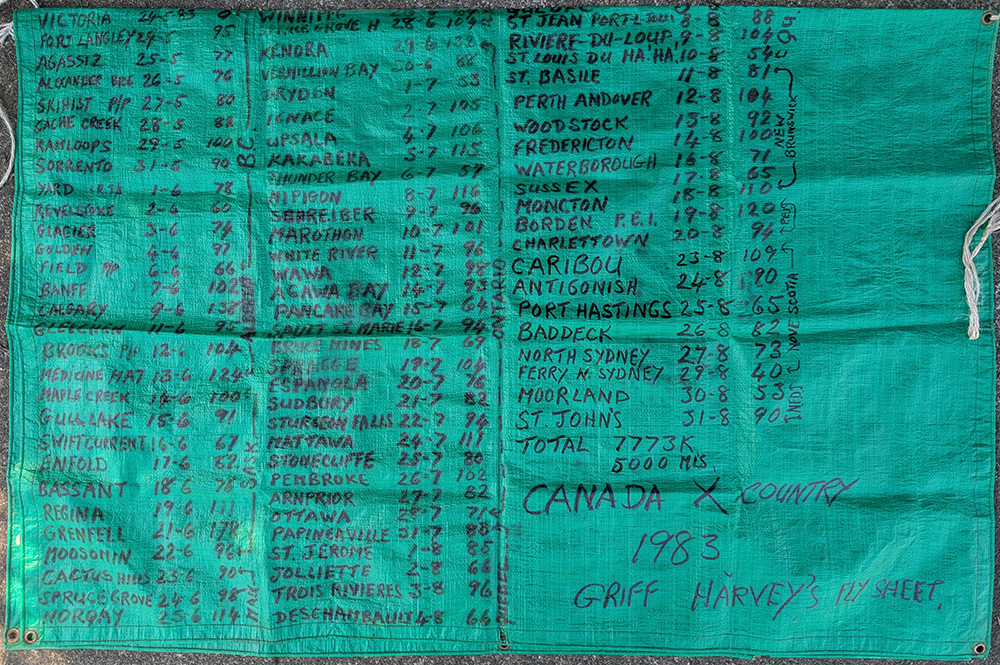 VICTORIA 24-5-83 0
FORT LANGLEY 24-5 95
AGASSIZ 25-5 77
ALEXANDER BDG 26-5 76
SKIHIST P/P 27-5 80
CACHE CREEK 28-5 88
KAMLOOPS 29-5 100
SORRENTO 31-5 90
YARD 1-6 78
REVELSTOKE 2-6
GLACIER 3-6 74
GOLDEN 4-6 97
FIELD P/P 6-6 66
BANFF 7-6 102
CALGARY 9-6 138
GLEICHEN 11-6 95
BROOKS P/P 12-6 104
MEDICINE HAT 13-6 124
MAPLE CREEK 14-6 100
GULL LAKE 15-6 91
SWIFTCURRENT 16-6 67
ENFOLD 17-6 62
BASSANT 18-6 78
REGINA 19-6 111
GRENFELL 21-6 178
MOOSOMIN 22-6 96
CACTUS HILLS 23-6 90
SPRUCE GROVE 24-6 98
NORQAY 25-6 114
B.C.
ALBERTA
SASK
MAN
WINNIPEG
GROVE H. 28-6 104
KENORA 29-6 132
VERMILLION BAY 30-6 88
DRYDEN 1-7 53
IGNACE 2-7 105
UPSALA 4-7 106
KAKABEKA 5-7 115
THUNDER BAY 6-7 57
NIPIGON 8-7 116
SCHREIBER 9-7 96
MAROTHON 10-7 101
WHITE RIVER 11-7 96
WAWA 12-7 98
AGAWA BAY 14-7 93
PANCAKE BAY 15-7 64
SAULT ST. MARIE 16-7 94
BRUCE MINES 18-7 69
SPRAGGE 19-7 104
ESPANOLA 20-7 76
SUDBURY 21-7 82
STURGEON FALLS 22-7 94
MATTAWA 24-7 111
STONECLIFFE 25-7 80
PEMBROKE 26-7 102
ARNPRIOR 27-7 82
OTTAWA 28-7 71
PAPINEAVILLE 31-7 88
ST. JEROME 1-8 85
JOLLIETTE 2-8 66
TROIS RIVIERES 3-8 96
DESCHAMBAULT 4-8 66
ONTARIO
QUEBEC
ST JEAN PORT-L JOLI 8-8 88
RIVIERE-DU-LOUP, 9-8 104
ST. LOUIS DU HA! HA. 10-8 54
ST. BASILE 11-8 81
PERTH ANDOVER 12-8 104
WOODSTOCK 13-8 92
FREDERICTON 14-8 100
WATERBOROUGH 16-8 71
SUSSEX 17-8 65
MONCTON 18-8 110
BORDEN P.E.I. 19-8 120
CHARLETTOWN 20-8 94
CARIBOU 23-8 109
ANTIGONISH 24-8 90
PORT HASTINGS 25-8 65
BADDECK 26-8 82
NORTH SYDNEY 27-8 73
FERRY N. SYDNEY 29-8 40
MOORLAND 30-8 53
ST. JOHN'S 31-8 90
NEW BRUNSWICK
PEI
NOVA SCOTIA
TOTAL 7773K
5000 MLS.
CANADA X COUNTRY
1983
GRIFF HARVEY'S FLY SHEET.